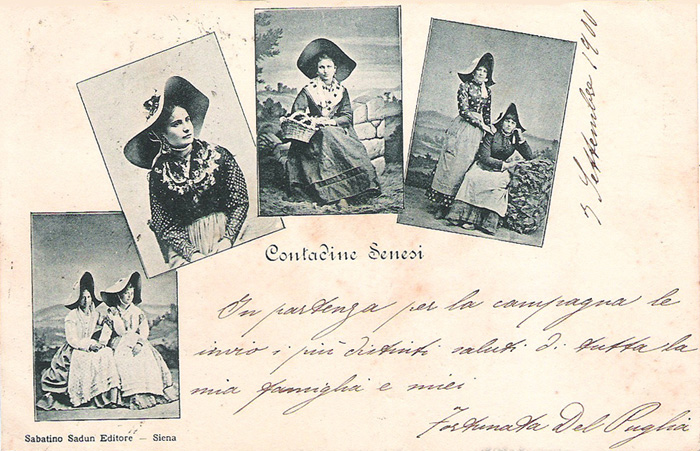 3 Settembre 1900
Contadine Senesi
In partenza per la campagna le
invio i più distinti saluti di tutta la
mia famiglia e miei
Fortunata Del Puglia
Sabatino Sadun Editore — Siena